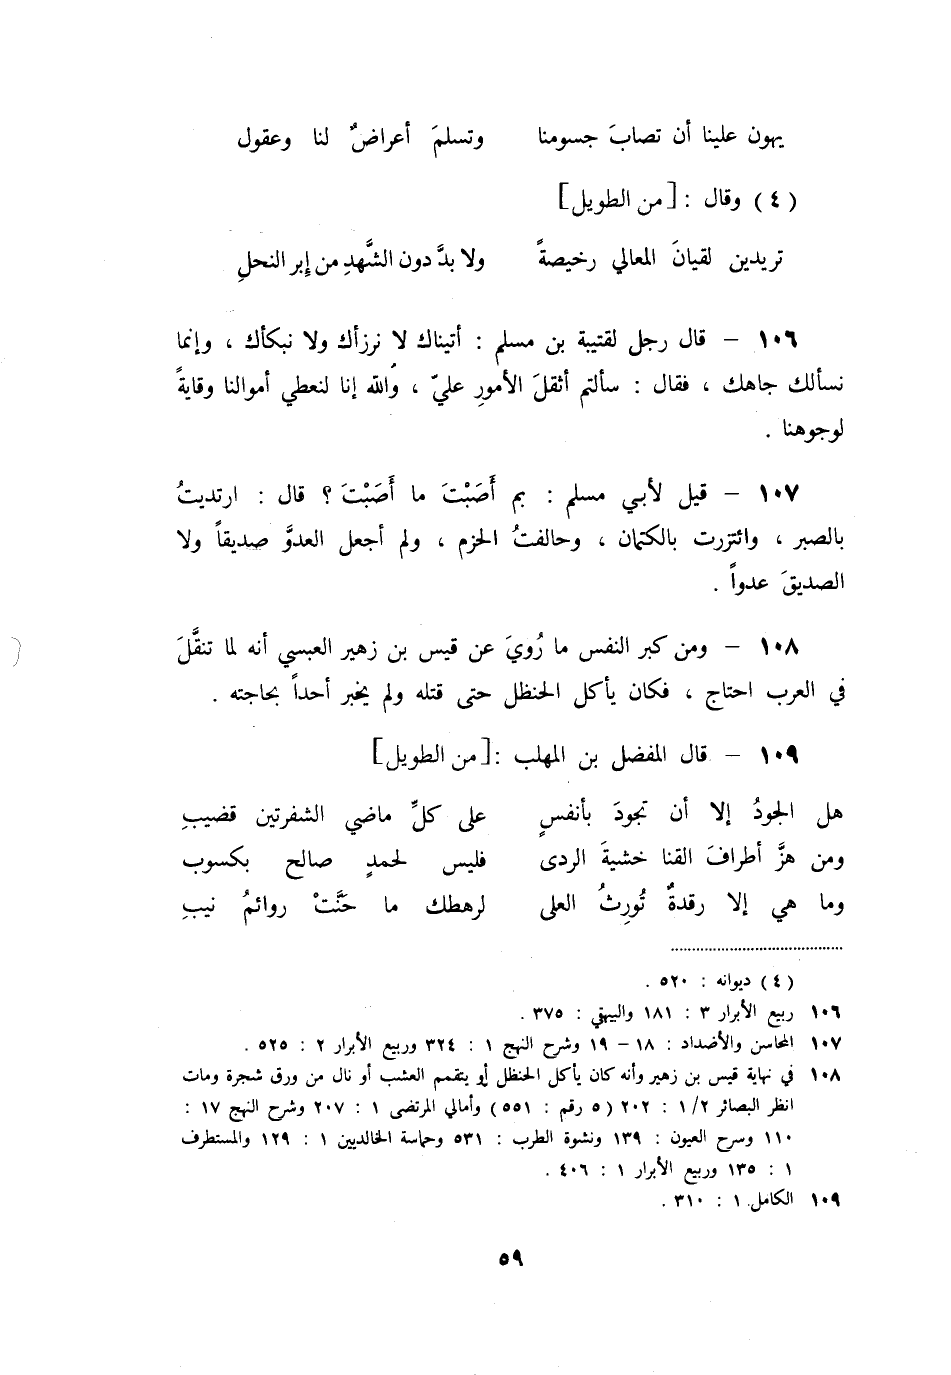 يهون علينا أن تصابَ جسومنا وتسلمَ أعراضٌ لنا وعقول
(٤) وقال : [من الطويل]
تريدين لقيانَ المعالي رخيصةً ولا بدَّ دون الشَّهدِ من إبر النحلِ
١٠٦ – قال رجل لقتيبة بن مسلم : أتيناك لا نرزأك ولا نبكأك ، وإنما
نسألك جاهك ، فقال : سألتم أثقلَ الأمورِ عليّ ، والله إنا لنعطي أموالنا وقايةً
لوجوهنا .
١٠٧ – قيل لأبي مسلم : بم أَصَبْتَ ما أَصَبْتَ ؟ قال : ارتديتُ
بالصبر ، وائتزرت بالكتمان ، وحالفتُ الحزم ، ولم أجعل العدوَّ صديقاً ولا
الصديقَ عدواً .
١٠٨ – ومن كبر النفس ما رُويَ عن قيس بن زهير العبسي أنه لما تنقَّلَ
في العرب احتاج ، فكان يأكل الحنظل حتى قتله ولم يخبر أحداً بحاجته .
١٠٩ – قال المفضل بن المهلب : [من الطويل]
هل الجودُ إلا أن تجودَ بأنفسٍ على كلِّ ماضي الشفرتين قضيبِ
ومن هزَّ أطرافَ القنا خشيةَ الردى فليس لحمدٍ صالح بكسوب
وما هي إلا رقدةٌ تُورِثُ العلى لرهطك ما حَنَّتْ روائمُ نيبِ
(٤) ديوانه : ٥٢٠ .
١٠٦ ربيع الأبرار ٣ : ١٨١ والبيهقي : ٣٧٥ .
١٠٧ المحاسن والأضداد : ١٨ – ١٩ وشرح النهج ١ : ٣٢٤ وربيع الأبرار ٢ : ٥٢٥ .
١٠٨ في نهاية قيس بن زهير وأنه كان يأكل الحنظل أو يتقمم العشب أو نال من ورق شجرة ومات
انظر البصائر ١/٢ : ٢٠٢ (٥ رقم : ٥٥١) وأمالي المرتضى ١ : ٢٠٧ وشرح النهج ١٧ :
١١٠ وسرح العيون : ١٣٩ ونشوة الطرب : ٥٣١ وحماسة الخالديين ١ : ١٢٩ والمستطرف
١ : ١٣٥ وربيع الأبرار ١ : ٤٠٦ .
١٠٩ الكامل ١ : ٣١٠ .
٥٩